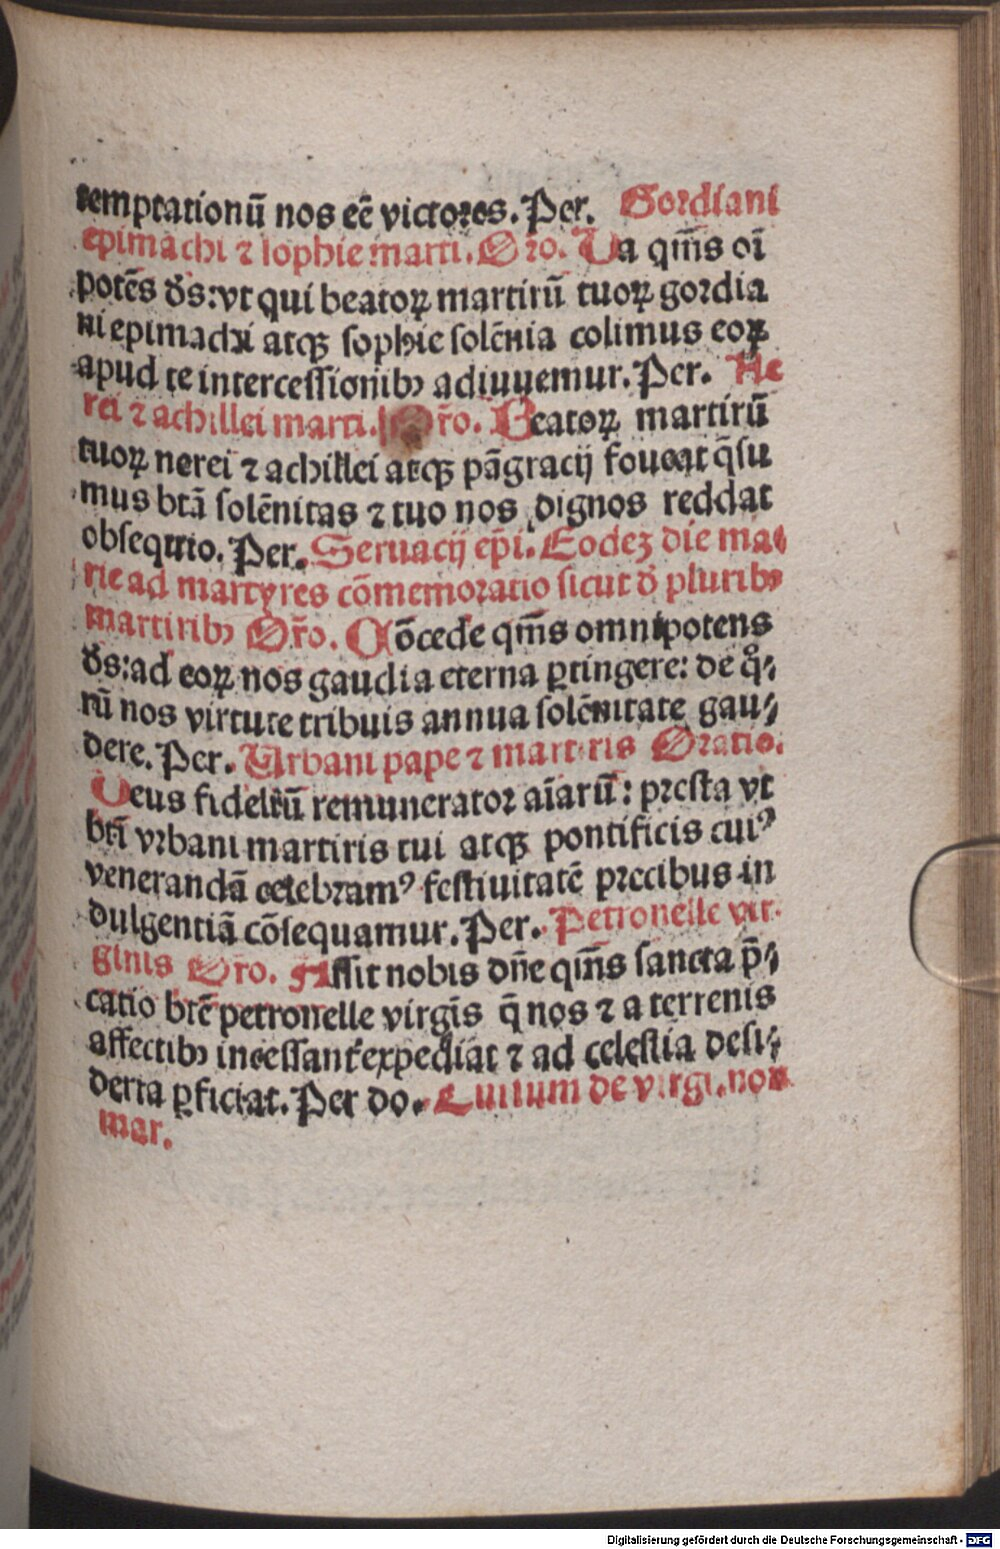 temptationū nos eē victores. Per. Gordiani
epimachi ⁊ sophie marti. Oro. Da qm̄s oī
potēs ds̄: vt qui beatoꝝ martirū tuoꝝ gordia
ni epimachi atqꝫ sophie solēnia colimus eoꝝ
apud te intercessionibꝰ adiuuemur. Per. Ne
rei ⁊ achillei marti. Or̄o. Beatoꝝ martirū
tuoꝝ nerei ⁊ achillei atqꝫ pāgracij foueat q̄su
mus btā solēnitas ⁊ tuo nos dignos reddat
obsequio. Per. Seruacij ep̄i. Eodeꝫ die ma⸗
rie ad martyres cōmemoratio sicut d̄ pluribꝰ
martiribꝰ Or̄o. Cōcede qm̄s omnipotens
ds̄: ad eoꝝ nos gaudia eterna ꝑtingere: de qͦ⸗
rū nos virtute tribuis annua solēnitate gau⸗
dere. Per. Urbani pape ⁊ martiris Oratio.
Deus fideliū remunerator aīarū: presta vt
bti̅ vrbani martiris tui atqꝫ pontificis cuiꝰ
venerandā celebramꝰ festiuitatē precibus in
dulgentiā cōsequamur. Per. Petronelle vir⸗
ginis Or̄o. Assit nobis dn̄e qm̄s sancta p̄⸗
catio btē petronelle virgīs q̄ nos ⁊ a terrenis
affectibꝰ incessant̄ expediat ⁊ ad celestia desi⸗
deria ꝑficiat. Per do. Quium de virgi. non
mar.
Digitalisierung gefördert durch die Deutsche Forschungsgemeinschaft - DFG